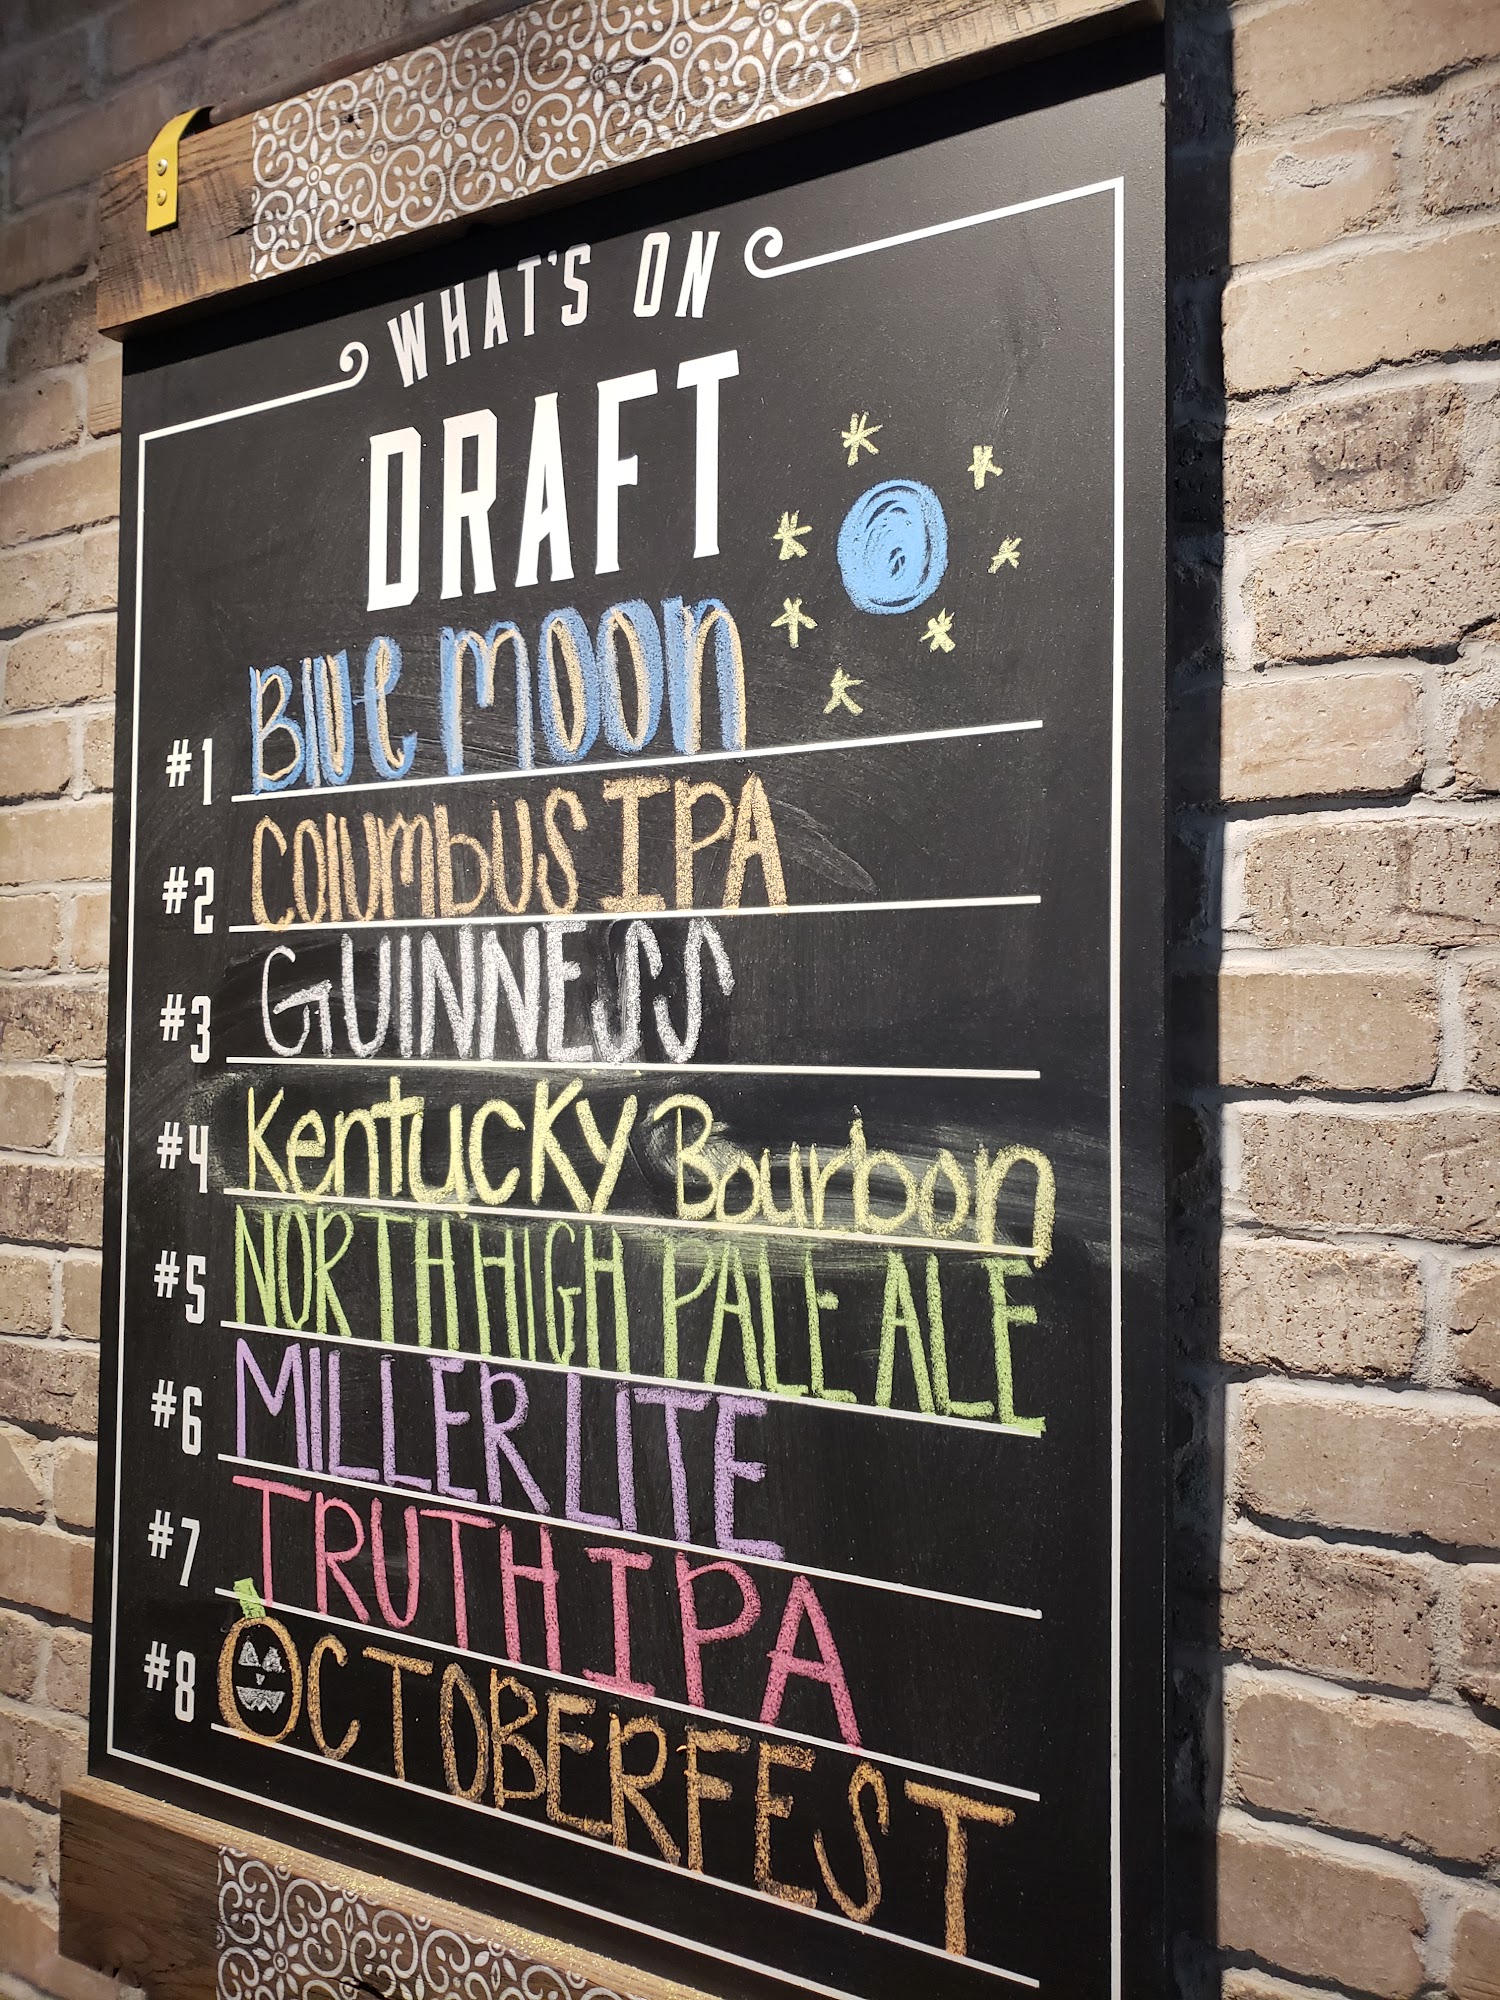 WHAT'S ON
DRAFT
#1 Blue Moon
#2 Columbus IPA
#3 GUINNESS
#4 Kentucky Bourbon
#5 NORTH HIGH PALE ALE
#6 MILLER LITE
#7 TRUTH IPA
#8 OCTOBERFEST